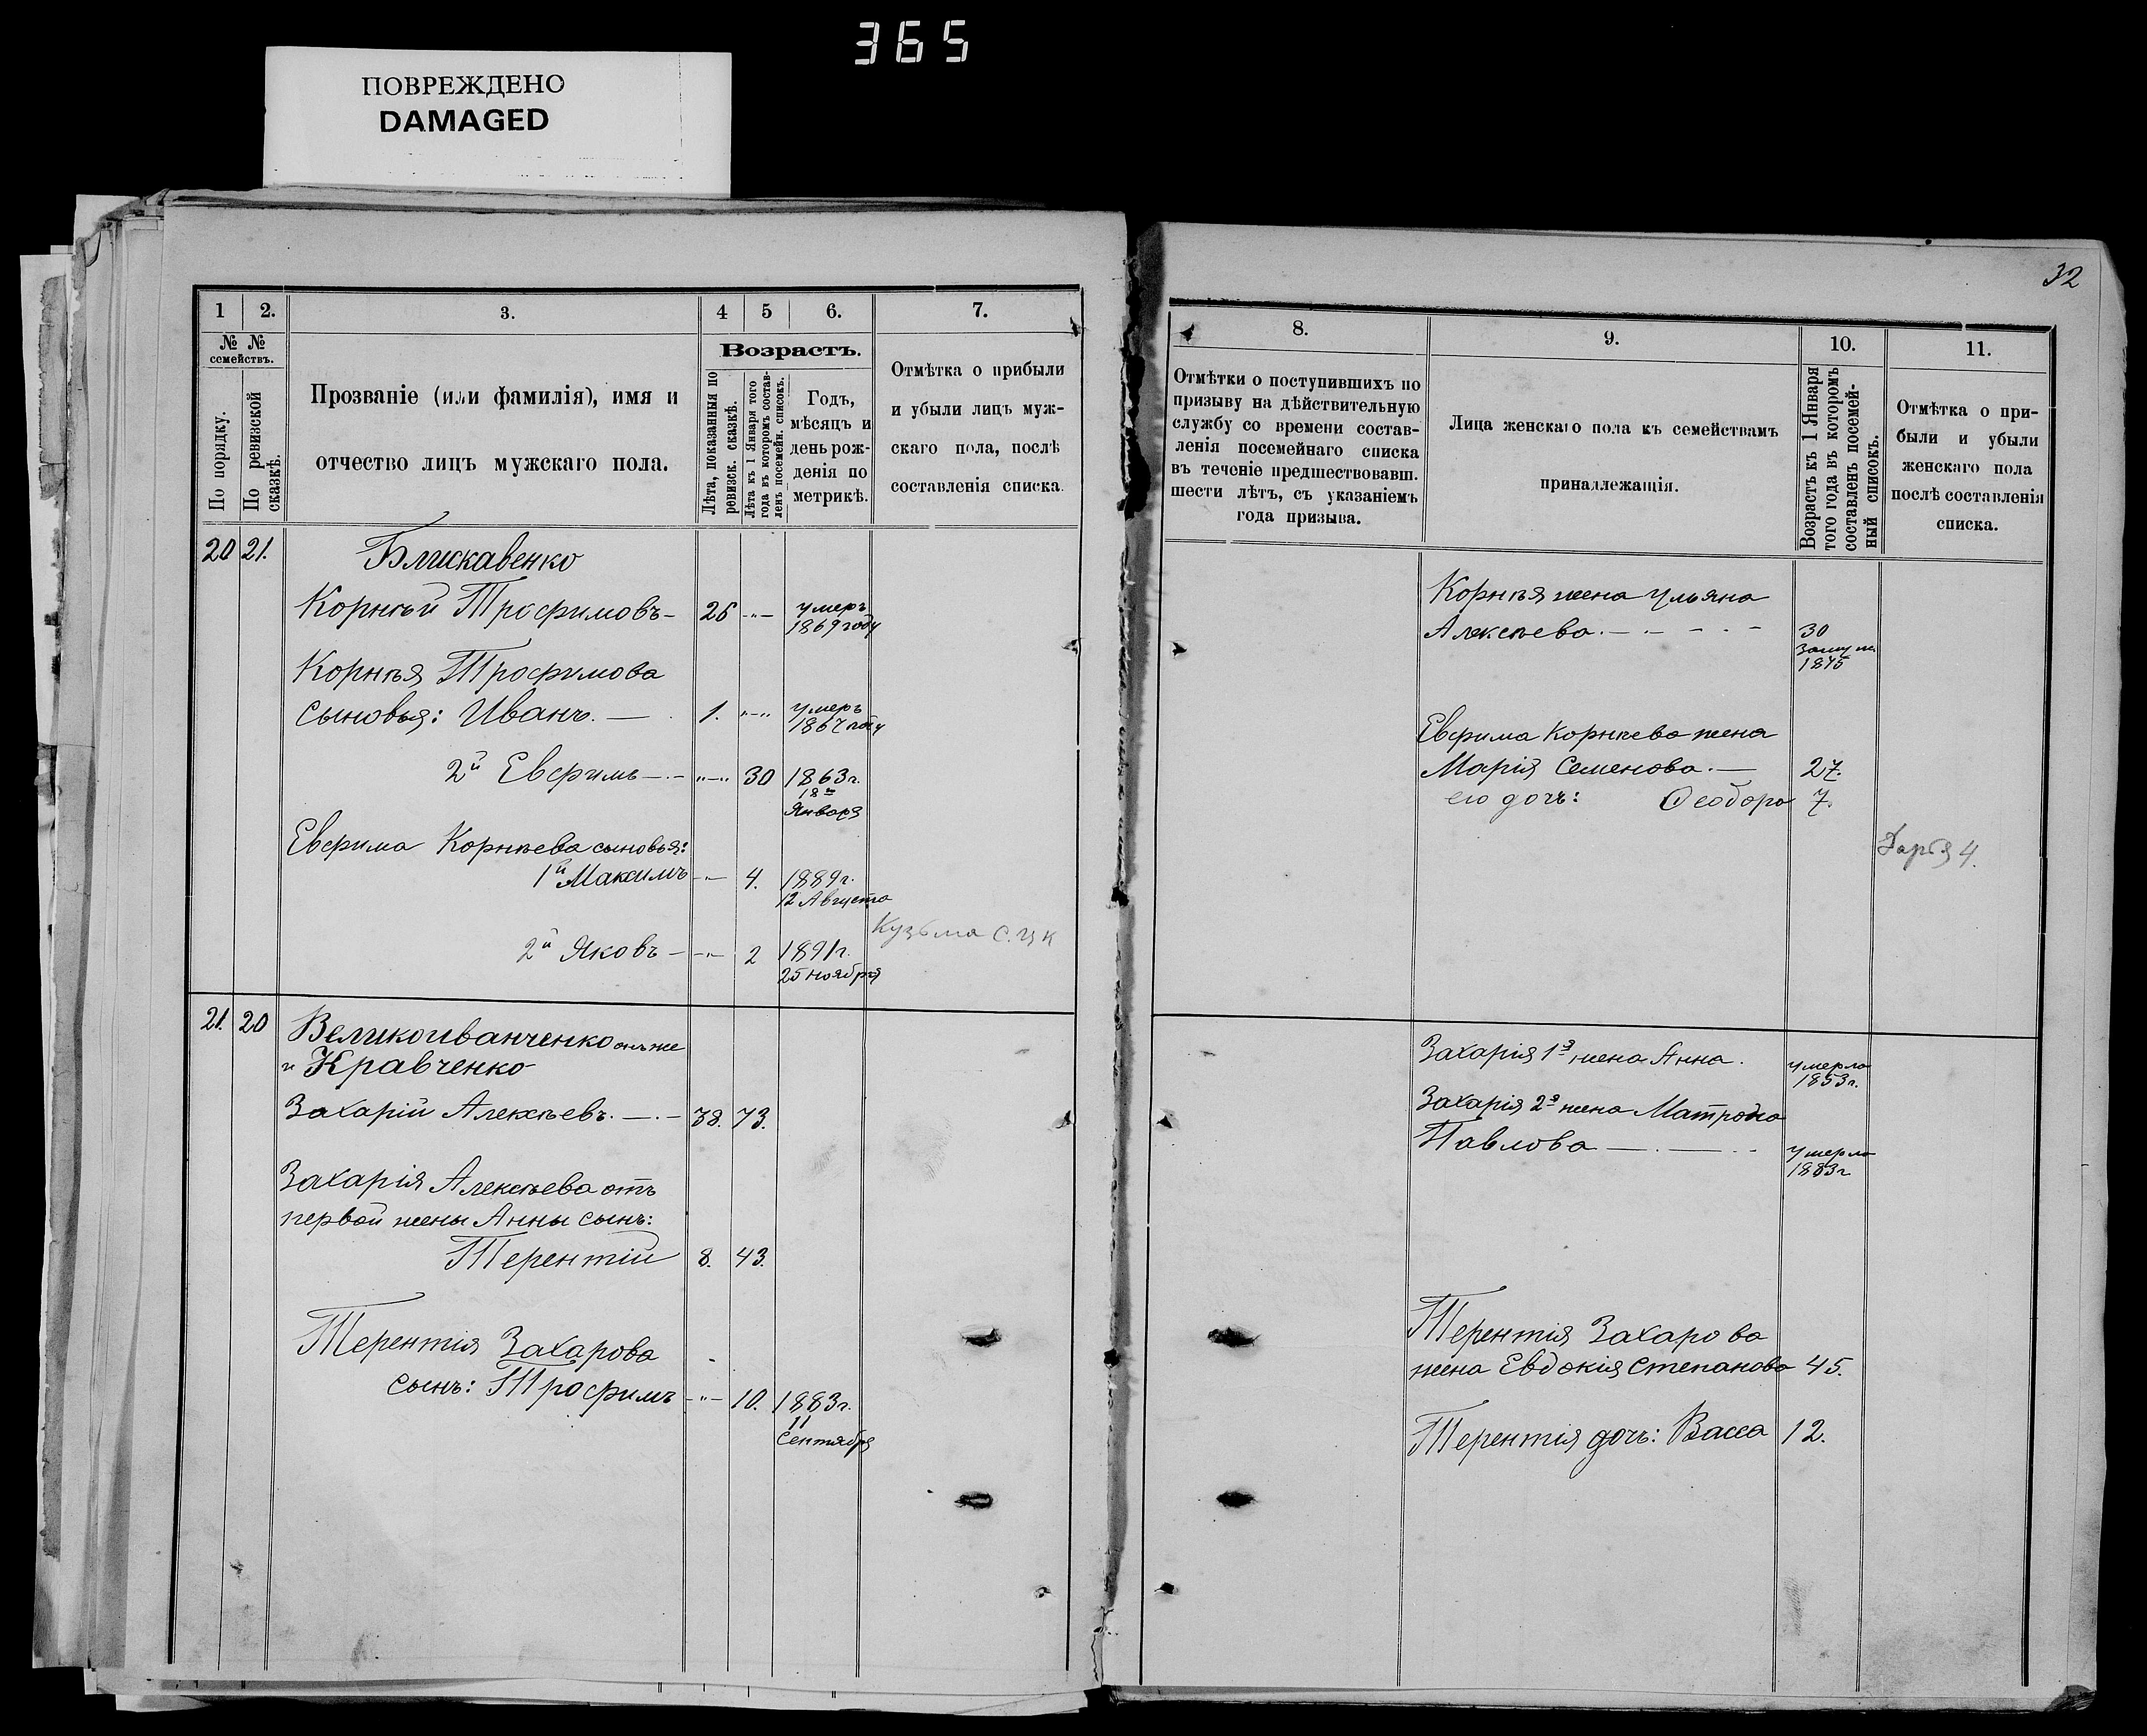 365
ПОВРЕЖДЕНО
DAMAGED
32
1
2.
3.
4
5
6.
7.
№ №
семействъ.
Возрастъ.
По порядку.
По ревизской
сказкѣ.
Прозваніе (или фамилія), имя и
отчество лицъ мужскаго пола.
Лѣта, показанныя по
ревизск. сказкѣ.
Лѣта къ 1 Января того
года въ которомъ состав-
ленъ посемейн. списокъ.
Годъ,
мѣсяцъ и
день рож-
денія по
метрикѣ.
Отмѣтка о прибыли
и убыли лицъ муж-
скаго пола, послѣ
составленія списка.
20 21.
Блискавенко
Корнѣй Трофимовъ - 26 -"- умеръ
1869 году
Корнѣя Трофимова
сыновья: Иванъ. — 1. "-" умеръ
1867 году
2й Евфимъ —.- "-" 30 1863г.
18го
Января
Евфима Корнѣева сыновья:
1й Максимъ -"- 4. 1889г.
12 Августа
Кузьма
2й Яковъ - -"- 2 1891г.
25 ноября
21. 20
Великоиванченко онъ же
и Кравченко
Захарій Алексѣевъ. —.- 38. 73.
Захарія Алексѣева отъ
первой жены Анны сынъ:
Терентій 8. 43.
Терентія Захарова
сынъ: Трофимъ -"- 10. 1883г.
11
Сентября
8.
9.
10.
11.
Отмѣтки о поступившихъ по
призыву на дѣйствительную
службу со времени состав-
ленія посемейнаго списка
въ теченіе предшествовавш.
шести лѣтъ, съ указаніемъ
года призыва.
Лица женскаго пола къ семействамъ
принадлежащія.
Возрастъ къ 1 Января
того года въ которомъ
составленъ посемей-
ный списокъ.
Отмѣтка о при-
были и убыли
женскаго пола
послѣ составленія
списка.
Корнѣя жена Ульяна
Алексѣева. — . - - - 30
Замуж.
1875
Евфима Корнѣева жена
Марія Семенова. — 27.
его дочь: Феодора 7.
Дарія 4.
Захарія 1я жена Анна. умерла
1853г.
Захарія 2я жена Матрона
Павлова —.—.. умерла
1883г
Терентія Захарова
жена Евдокія Степанова 45.
Терентія дочь: Васса 12.